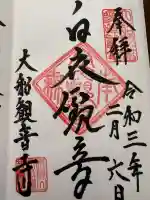 奉拝
令和三年
二月六日
白衣観音
大船観音寺